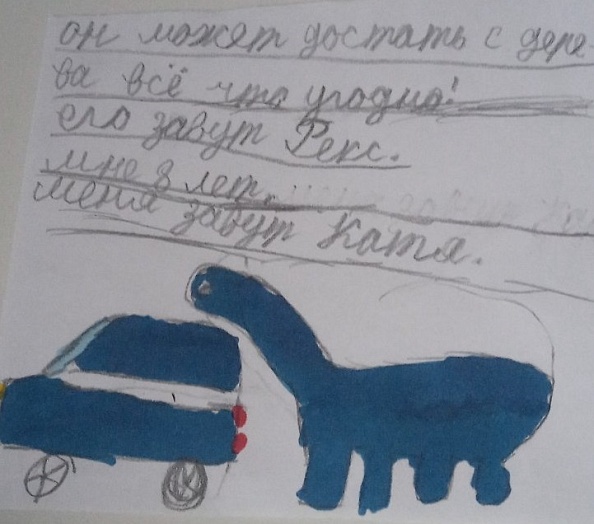 он может достать с дере-
ва всё что угодно!
его завут Рекс.
мне 8 лет.
меня завут Катя.